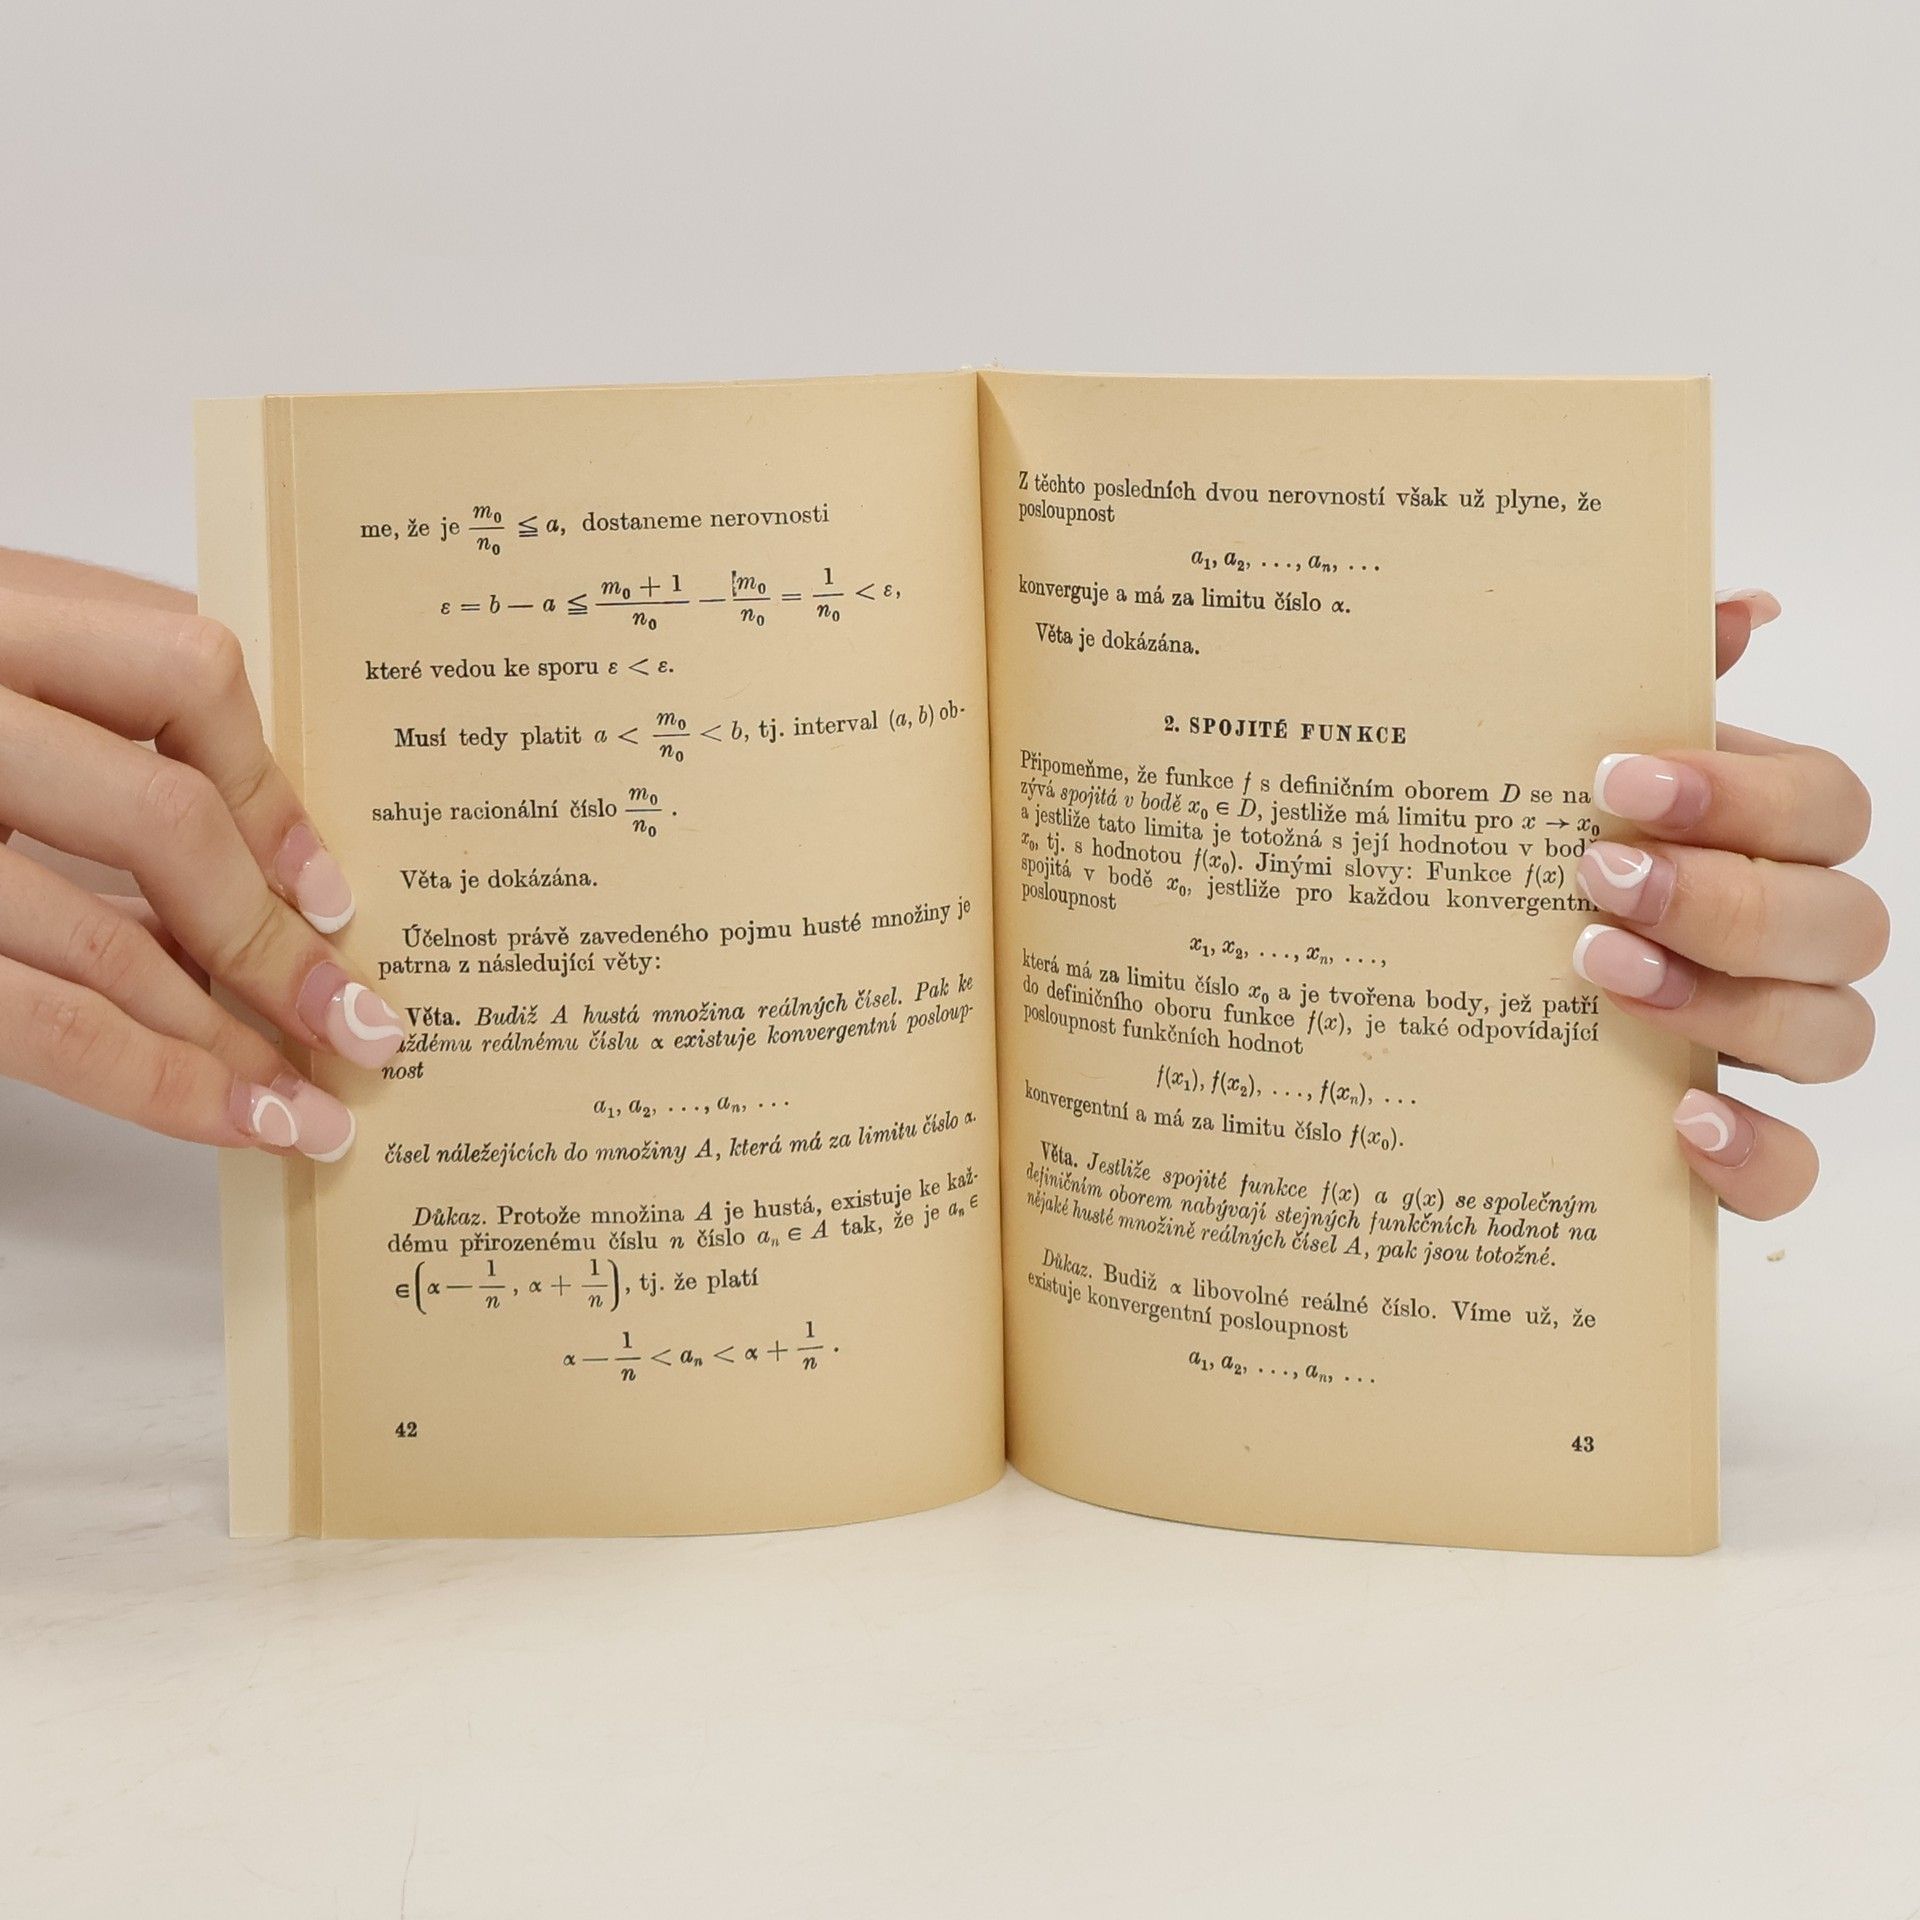 me, že je m₀/n₀ ≦ a, dostaneme nerovnosti
ε = b — a ≦ (m₀ + 1)/n₀ — m₀/n₀ = 1/n₀ < ε,
které vedou ke sporu ε < ε.
Musí tedy platit a < m₀/n₀ < b, tj. interval (a, b) ob-
sahuje racionální číslo m₀/n₀ .
Věta je dokázána.
Účelnost právě zavedeného pojmu husté množiny je
patrna z následující věty:
Věta. Budiž A hustá množina reálných čísel. Pak ke
reálnému číslu α existuje konvergentní posloup-
nost
a₁, a₂, ..., aₙ, ...
čísel náležejících do množiny A, která má za limitu číslo α.
Důkaz. Protože množina A je hustá, existuje ke kaž-
dému přirozenému číslu n číslo aₙ ∈ A tak, že je aₙ ∈
∈ (α — 1/n , α + 1/n), tj. že platí
α — 1/n < aₙ < α + 1/n .
42
Z těchto posledních dvou nerovností však už plyne, že
posloupnost
a₁, a₂, ..., aₙ, ...
konverguje a má za limitu číslo α.
Věta je dokázána.
2. SPOJITÉ FUNKCE
Připomeňme, že funkce f s definičním oborem D se na-
zývá spojitá v bodě x₀ ∈ D, jestliže má limitu pro x → x₀
a jestliže tato limita je totožná s její hodnotou v
x₀, tj. s hodnotou f(x₀). Jinými slovy: Funkce f(x)
spojitá v bodě x₀, jestliže pro každou konvergentní
posloupnost
x₁, x₂, ..., xₙ, ...,
která má za limitu číslo x₀ a je tvořena body, jež patří
do definičního oboru funkce f(x), je také odpovídající
posloupnost funkčních hodnot
f(x₁), f(x₂), ..., f(xₙ), ...
konvergentní a má za limitu číslo f(x₀).
Věta. Jestliže spojité funkce f(x) a g(x) se společným
definičním oborem nabývají stejných funkčních hodnot na
nějaké husté množině reálných čísel A, pak jsou totožné.
Důkaz. Budiž α libovolné reálné číslo. Víme už, že
existuje konvergentní posloupnost
a₁, a₂, ..., aₙ, ...
43